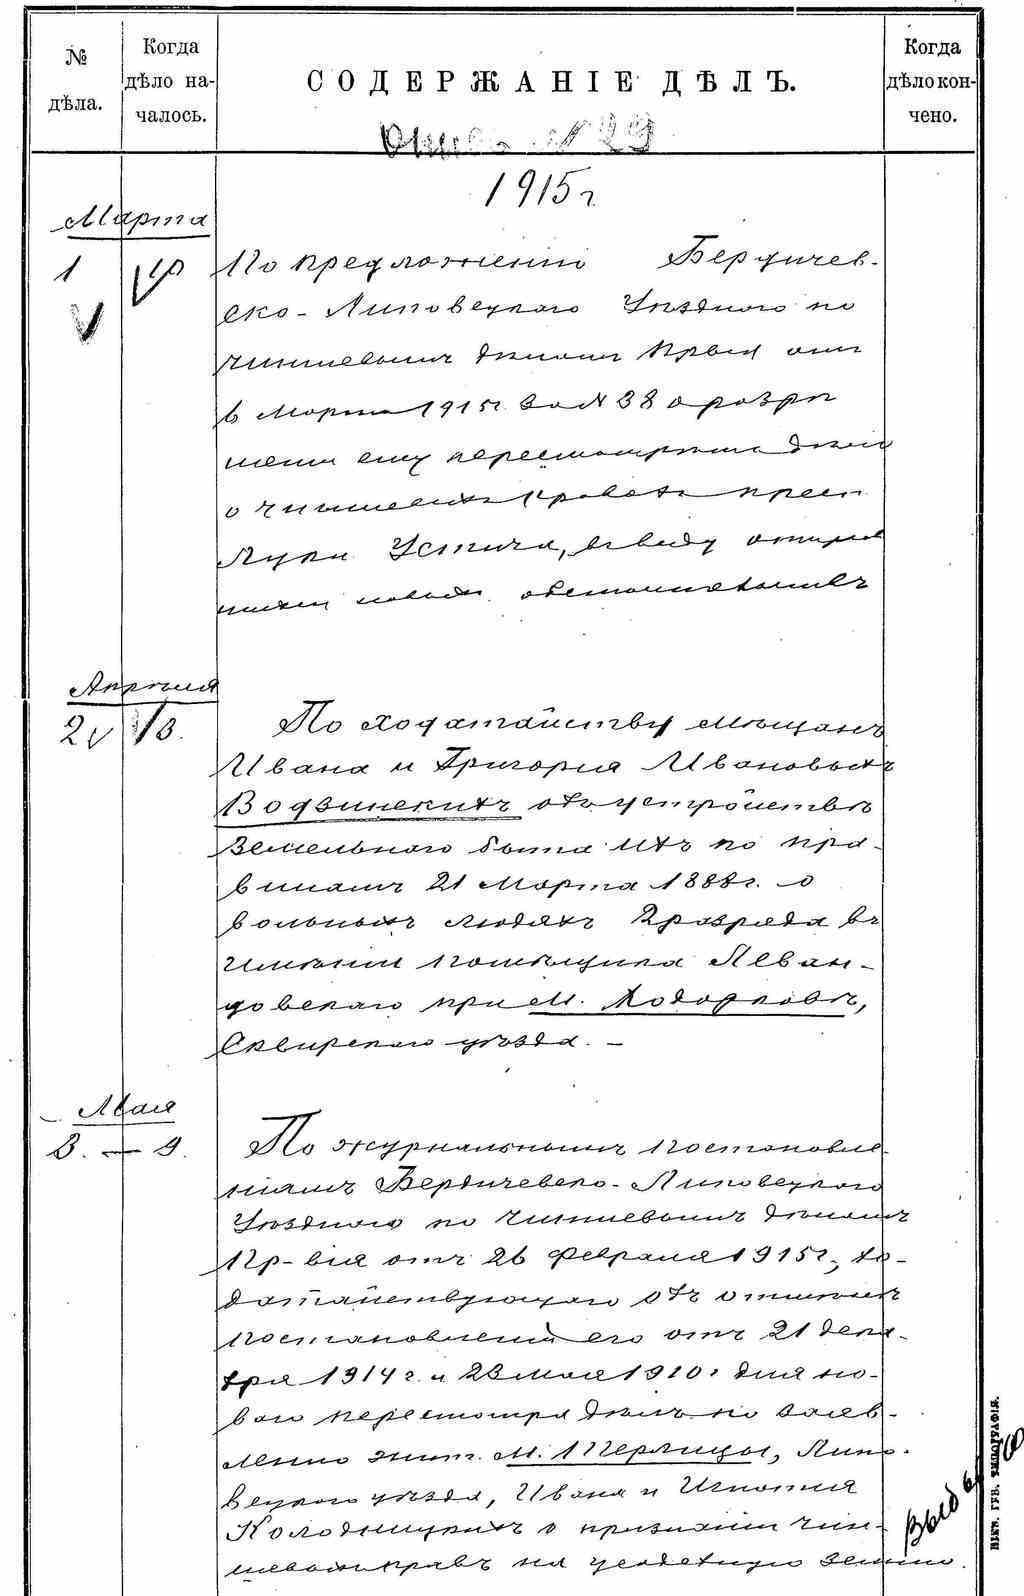 № дѣла.
Когда дѣло началось.
СОДЕРЖАНІЕ ДѢЛЪ.
Когда дѣло кончено.
Опись № 29
1915 г
Марта
1
По предложенію Бердичев-
ско-Липовецкаго Уѣзднаго по
чиншевымъ дѣламъ Пр-вія отъ
Марта 1915 г. за № 38 о разрѣ
шеніи ему пересмотрѣть дѣло
о чиншевыхъ правахъ крест.
Луки Устича, въ виду открыв
шихся новыхъ обстоятельствъ
Апрѣля
2 13.
По ходатайству мѣщанъ
Ивана и Григорія Ивановыхъ
Водзинскихъ объ устройствѣ
земельнаго быта ихъ по пра-
виламъ 21 Марта 1888 г. о
вольныхъ людяхъ 2 разряда въ
имѣніи помѣщика Леван-
довскаго при м. Ходорковѣ,
Сквирскаго уѣзда. –
Мая
3. — 9.
По журнальнымъ постановле-
ніямъ Бердичевско-Липовецкаго
Уѣзднаго по чиншевымъ дѣламъ
Пр-вія отъ 26 Февраля 1915 г., хо-
датайствующаго объ отмѣнѣ
постановленій его отъ 21 дека-
бря 1914 г. и 23 мая 1910 г для но-
ваго пересмотра дѣлъ по заяв-
ленію жит. м. Перлицы, Липо-
вецкаго уѣзда, Ивана и Игнатія
Колодницкихъ о признаніи чин-
шевыхъ правъ на усадебную землю.
КІЕВ. ГУБ. ТИПОГРАФІЯ.